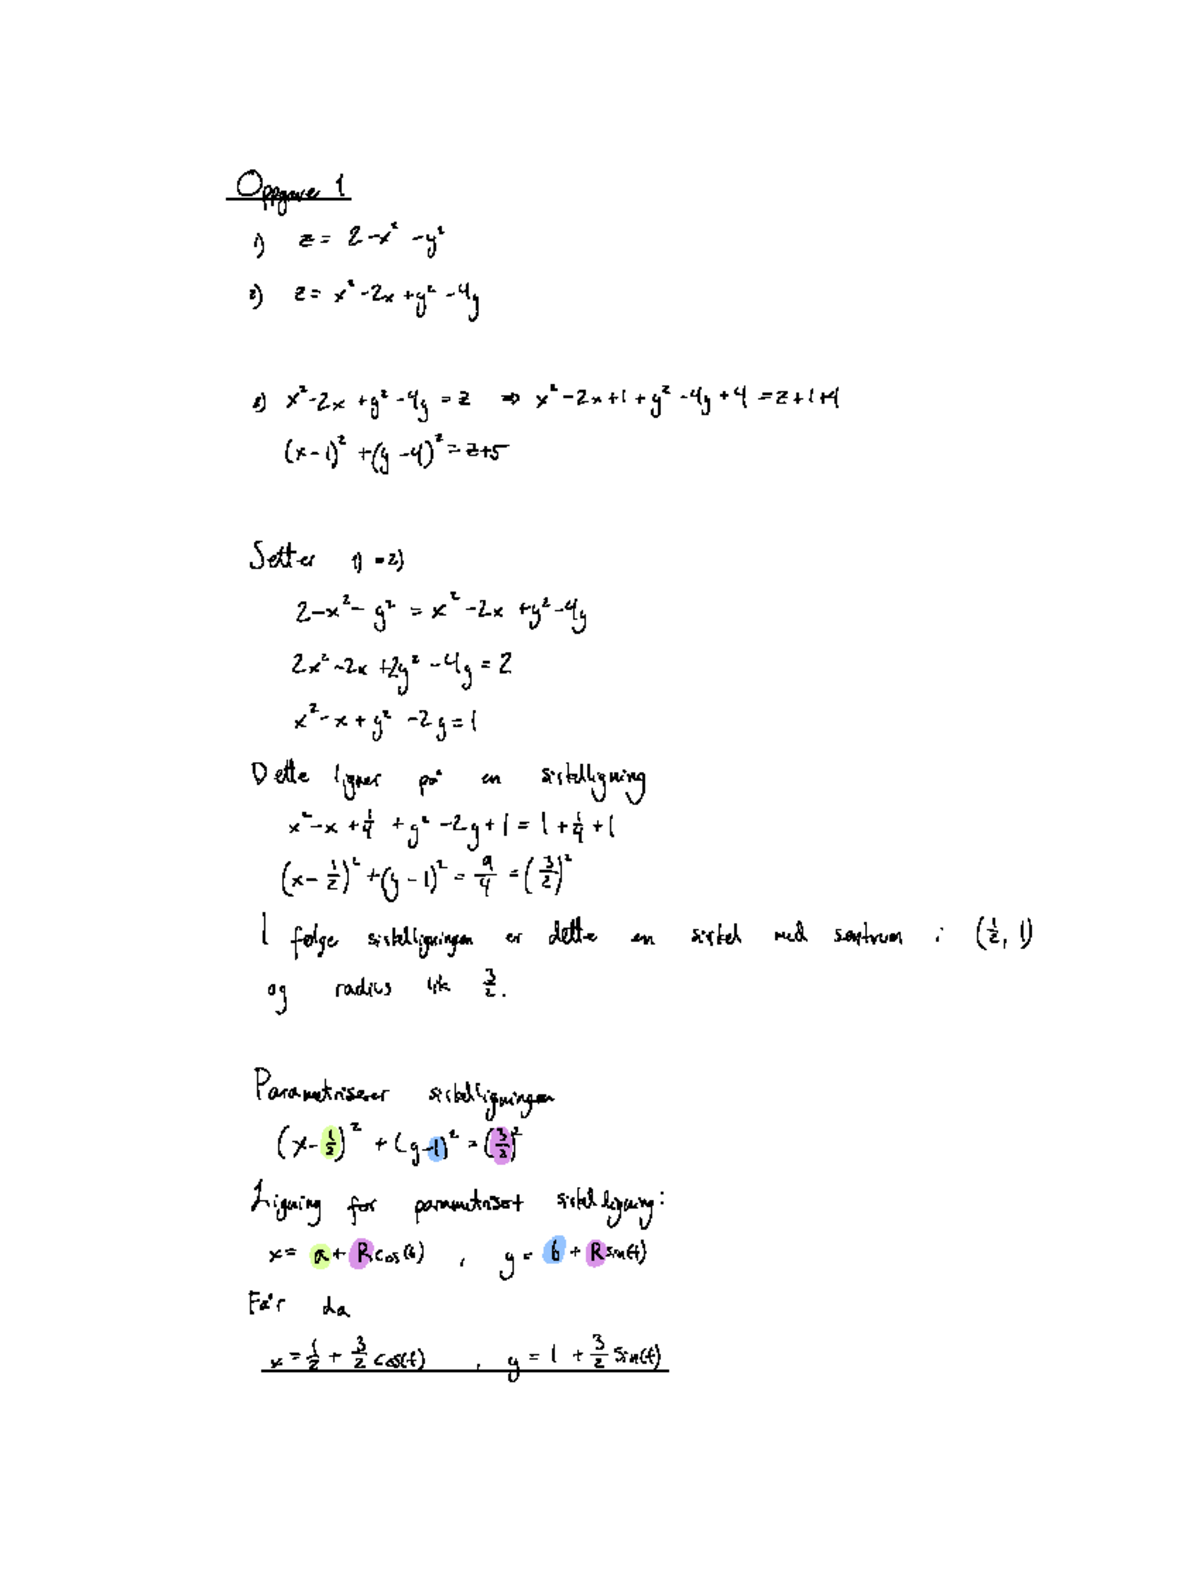 Oppgave 1
1) z = 2-x² -y²
2) z = x²-2x +y² -4y
2) x²-2x +y² -4y = z ⇒ x²-2x+1+y²-4y+4 = z+1+4
(x-1)² +(y-4)² = z+5
Setter 1) = 2)
2-x²-y² = x²-2x +y²-4y
2x²-2x +2y² -4y = 2
x²-x+y² -2y = 1
Dette ligner på en sirkelligning
x²-x +1/4 +y² -2y+1 = 1+1/4+1
(x-1/2)² +(y-1)² = 9/4 = (3/2)²
I følge sirkelligningen er dette en sirkel med sentrum i (1/2, 1)
og radius lik 3/2.
Parametriserer sirkelligningen
(x-1/2)² + (y-1)² = (3/2)²
Ligning for parametrisert sirkelligning:
x = a + Rcos(t) , y = b + Rsin(t)
Får da
x = 1/2 + 3/2 cos(t) , y = 1 + 3/2 sin(t)